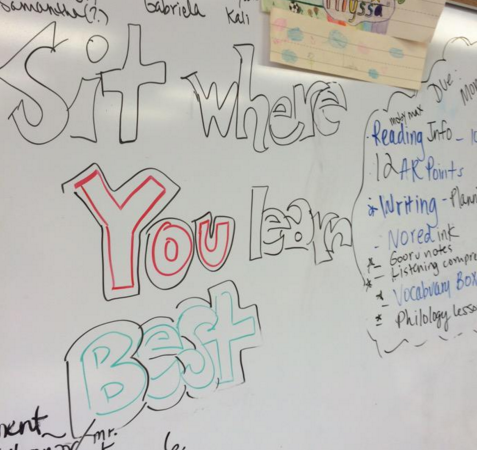 Samantha(?) Gabriela Kali
yssa
Sit where
You learn
Best
Due:
Reading Info_
12 AR Points
* Writing - Planni
- Noredink
* Gooru notes
* Listening compre
* Vocabulary Box
* Philology lesso
ment
mr.